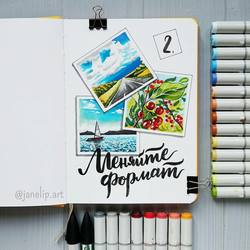 2.
Меняйте
формат
@janelip.art